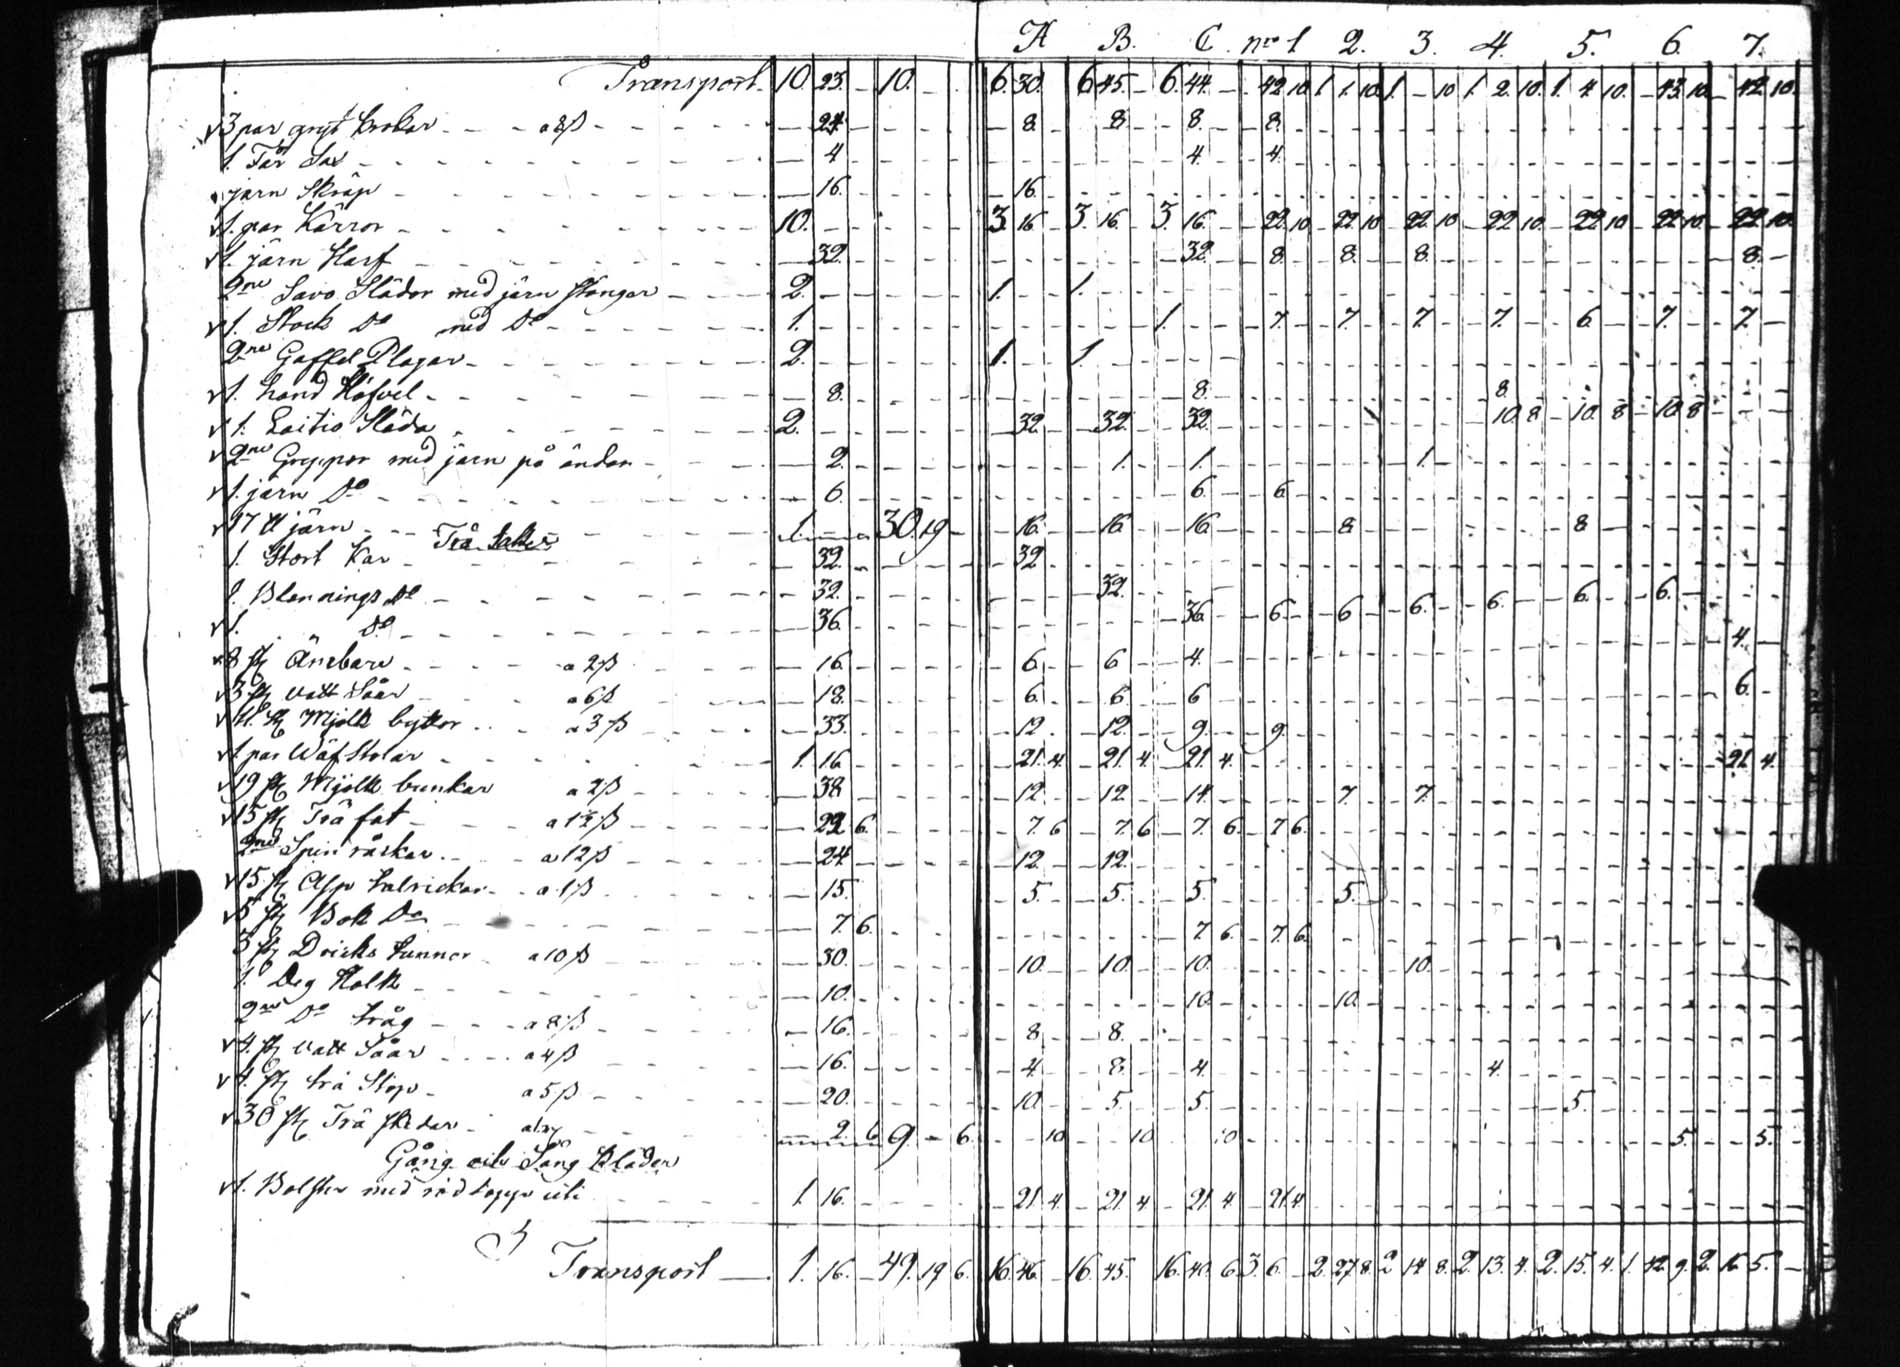 A B. C. nro 1 2. 3. 4. 5. 6. 7.
Transport 10. 23. 10. 6. 30. 6 45. 6. 44. 42 10 1. 1. 10. 1. 10 1. 2. 10. 1. 4. 10. 43. 10. 42 10.
3 par gryt krokar a 8ß 24. 8. 8. 8. 8.
1. Får Sax 4 4. 4.
järn Skräp 16. 16.
1. par Kärror 10. 3. 16. 3. 16. 3. 16. 22 10 22 10 22 10 22 10. 22 10 22 10. 22 10.
1. järn Harf 32. 32. 8. 8. 8. 8.
2ne Savo Slädor med järn stänger 2. 1. 1.
1. Stock Do med Do 1. 1. 7. 7. 7. 7. 6. 7. 7.
2ne Gaffel Plogar 2. 1. 1.
1. hand 8. 8. 8.
1. Laitio Släda 2. 32. 32. 32. 10. 8 10. 8 10 8
2ne Greppar med järn på ändan 2. 1. 1. 1.
1. järn Do 6. 6. 6.
17 ℔ järn 1. 30. 19 16. 16. 16 8. 8
Trä Saker
1. Stort Kar 32. 32
1. Do 32. 32.
1. Do 36. 36. 6. 6 6. 6. 6. 6.
8 st Ämbare a 2ß 16. 6. 6 4. 4.
3 st vatt Såar a 6ß 18. 6. 6. 6 6.
11. st Mjölk byttor a 3ß 33. 12. 12. 9. 9.
1 par Wäf Stolar 1. 16. 21. 4. 21. 4. 21. 4. 21. 4.
19 st Mjölk bunkar a 2ß 38 12. 12. 14. 7. 7.
15 st Trä fat 22 6. 7. 6 7. 6 7. 6. 7 6.
2ne Spin råckar a 12ß 24 12. 12.
15 st Asp talrickar a 1ß 15. 5. 5. 5. 5.
5 st Bok Do 7. 6. 7 6. 7. 6.
3 st Dricks kannor a 10ß 30. 10. 10. 10. 10.
1. Deg Holk 10. 10. 10.
2ne Do tråg a 8ß 16. 8. 8.
4. st vatt Såar a 4ß 16. 4. 8. 4. 4.
4. st trä Stop a 5ß 20. 10. 5. 5. 5.
30 st Trä skedar 2. 6 9 6. 10 10 10 5. 5.
Gång och Säng Kläder
1. Bolster med uti 1. 16. 21. 4. 21. 4. 21. 4 21 4.
Transport 1. 16. 49. 19 6. 16. 46. 16. 45. 16. 40. 6 3. 6. 2. 27 8. 2 14 8. 2. 13. 4. 2. 15. 4. 1. 42. 9. 2. 15 5.